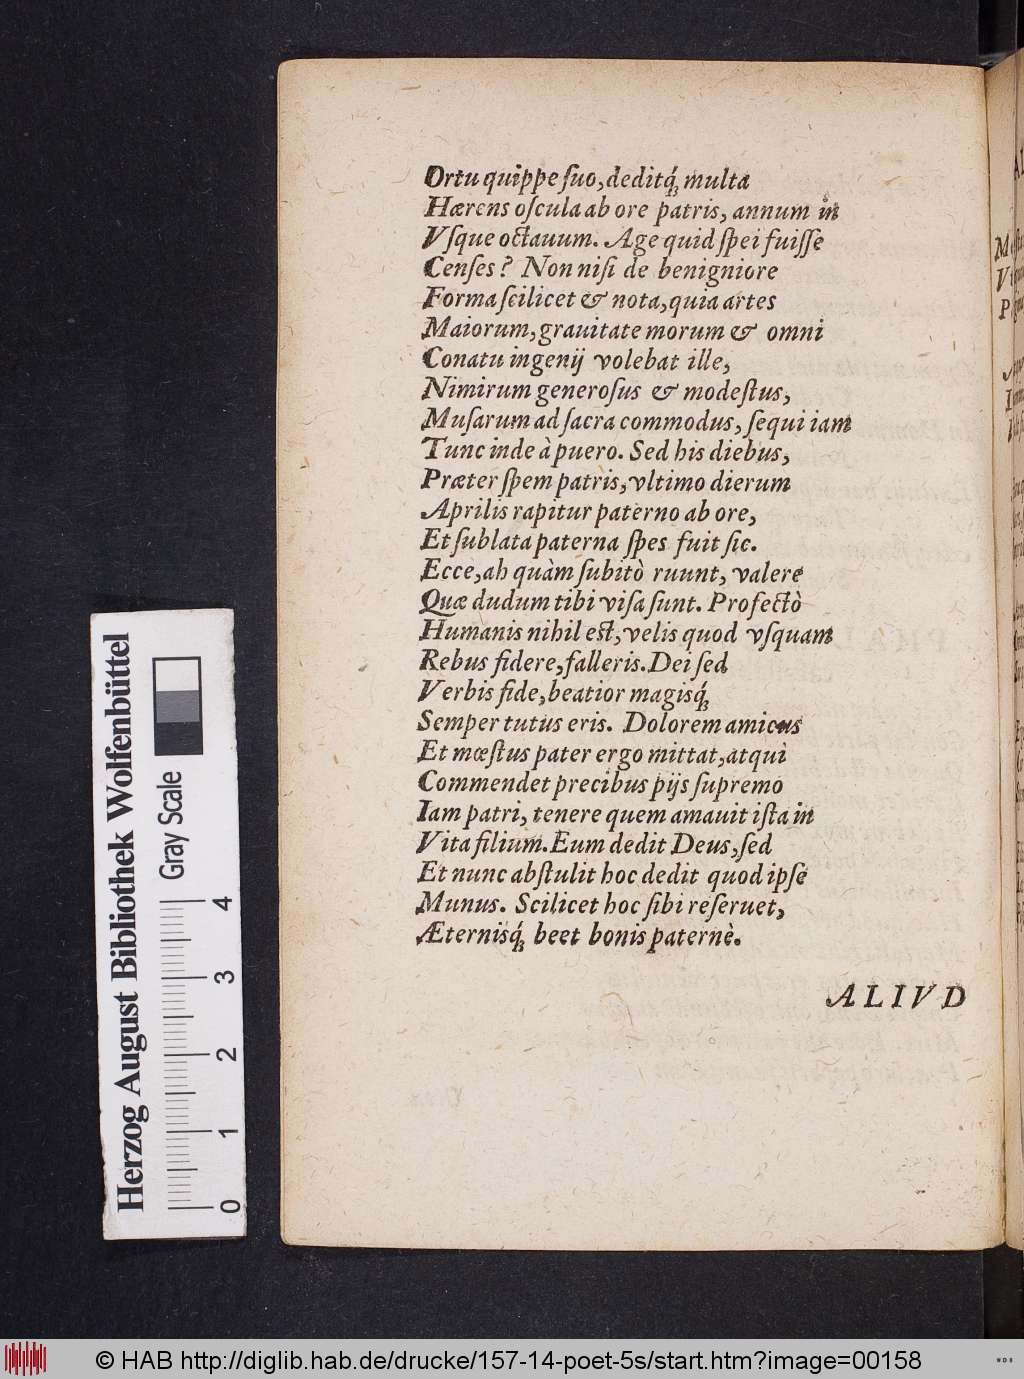 Ortu quippe ſuo, deditq́; multa
Hærens oſcula ab ore patris, annum in
Vſque octauum. Age quid ſpei fuiſſe
Cenſes? Non niſi de benigniore
Forma ſcilicet & nota, quia artes
Maiorum, grauitate morum & omni
Conatu ingenij volebat ille,
Nimirum generoſus & modeſtus,
Muſarum ad ſacra commodus, ſequi iam
Tunc inde à puero. Sed his diebus,
Præter ſpem patris, vltimo dierum
Aprilis rapitur paterno ab ore,
Et ſublata paterna ſpes fuit ſic.
Ecce, ah quàm ſubitò ruunt, valere
Quæ dudum tibi viſa ſunt. Profectò
Humanis nihil eſt, velis quod vſquam
Rebus fidere, falleris. Dei ſed
Verbis fide, beatior magisq́;
Semper tutus eris. Dolorem amicus
Et mœſtus pater ergo mittat, atquì
Commendet precibus pijs ſupremo
Iam patri, tenere quem amauit iſta in
Vita filium. Eum dedit Deus, ſed
Et nunc abſtulit hoc dedit quod ipſe
Munus. Scilicet hoc ſibi reſeruet,
Æternisq́; beet bonis paternè.
ALIVD
Herzog August Bibliothek Wolfenbüttel
Gray Scale
0 1 2 3 4
© HAB http://diglib.hab.de/drucke/157-14-poet-5s/start.htm?image=00158